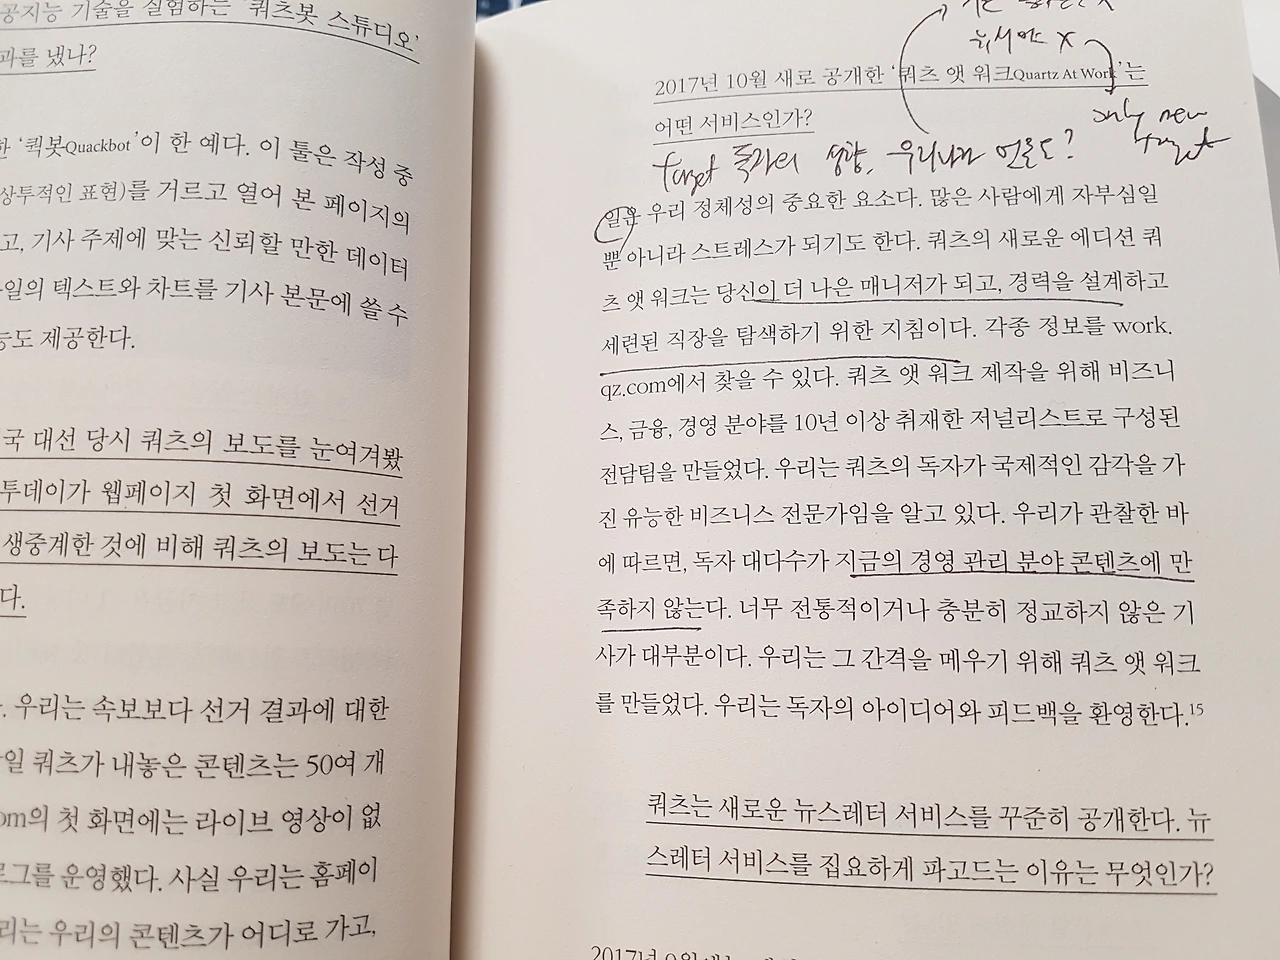 공지능 기술을 실험하는 ‘쿼츠봇 스튜디오’
과를 냈나?
한 ‘쿽봇Quackbot’이 한 예다. 이 툴은 작성 중
상투적인 표현)를 거르고 열어 본 페이지의
고, 기사 주제에 맞는 신뢰할 만한 데이터
일의 텍스트와 차트를 기사 본문에 쓸 수
능도 제공한다.
국 대선 당시 쿼츠의 보도를 눈여겨봤
투데이가 웹페이지 첫 화면에서 선거
생중계한 것에 비해 쿼츠의 보도는 다
다.
우리는 속보보다 선거 결과에 대한
일 쿼츠가 내놓은 콘텐츠는 50여 개
om의 첫 화면에는 라이브 영상이 없
로그를 운영했다. 사실 우리는 홈페이
리는 우리의 콘텐츠가 어디로 가고,
뉴서비스 X
only new
target
2017년 10월 새로 공개한 ‘쿼츠 앳 워크Quartz At Work’는
어떤 서비스인가?
target 독자의 성향, 우리나라 언론도?
일은 우리 정체성의 중요한 요소다. 많은 사람에게 자부심일
뿐 아니라 스트레스가 되기도 한다. 쿼츠의 새로운 에디션 쿼
츠 앳 워크는 당신이 더 나은 매니저가 되고, 경력을 설계하고
세련된 직장을 탐색하기 위한 지침이다. 각종 정보를 work.
qz.com에서 찾을 수 있다. 쿼츠 앳 워크 제작을 위해 비즈니
스, 금융, 경영 분야를 10년 이상 취재한 저널리스트로 구성된
전담팀을 만들었다. 우리는 쿼츠의 독자가 국제적인 감각을 가
진 유능한 비즈니스 전문가임을 알고 있다. 우리가 관찰한 바
에 따르면, 독자 대다수가 지금의 경영 관리 분야 콘텐츠에 만
족하지 않는다. 너무 전통적이거나 충분히 정교하지 않은 기
사가 대부분이다. 우리는 그 간격을 메우기 위해 쿼츠 앳 워크
를 만들었다. 우리는 독자의 아이디어와 피드백을 환영한다.15
쿼츠는 새로운 뉴스레터 서비스를 꾸준히 공개한다. 뉴
스레터 서비스를 집요하게 파고드는 이유는 무엇인가?
2017년 9월에는